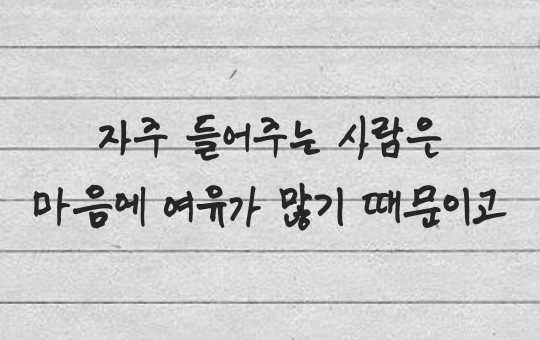 자주 들어주는 사람은
마음에 여유가 많기 때문이고